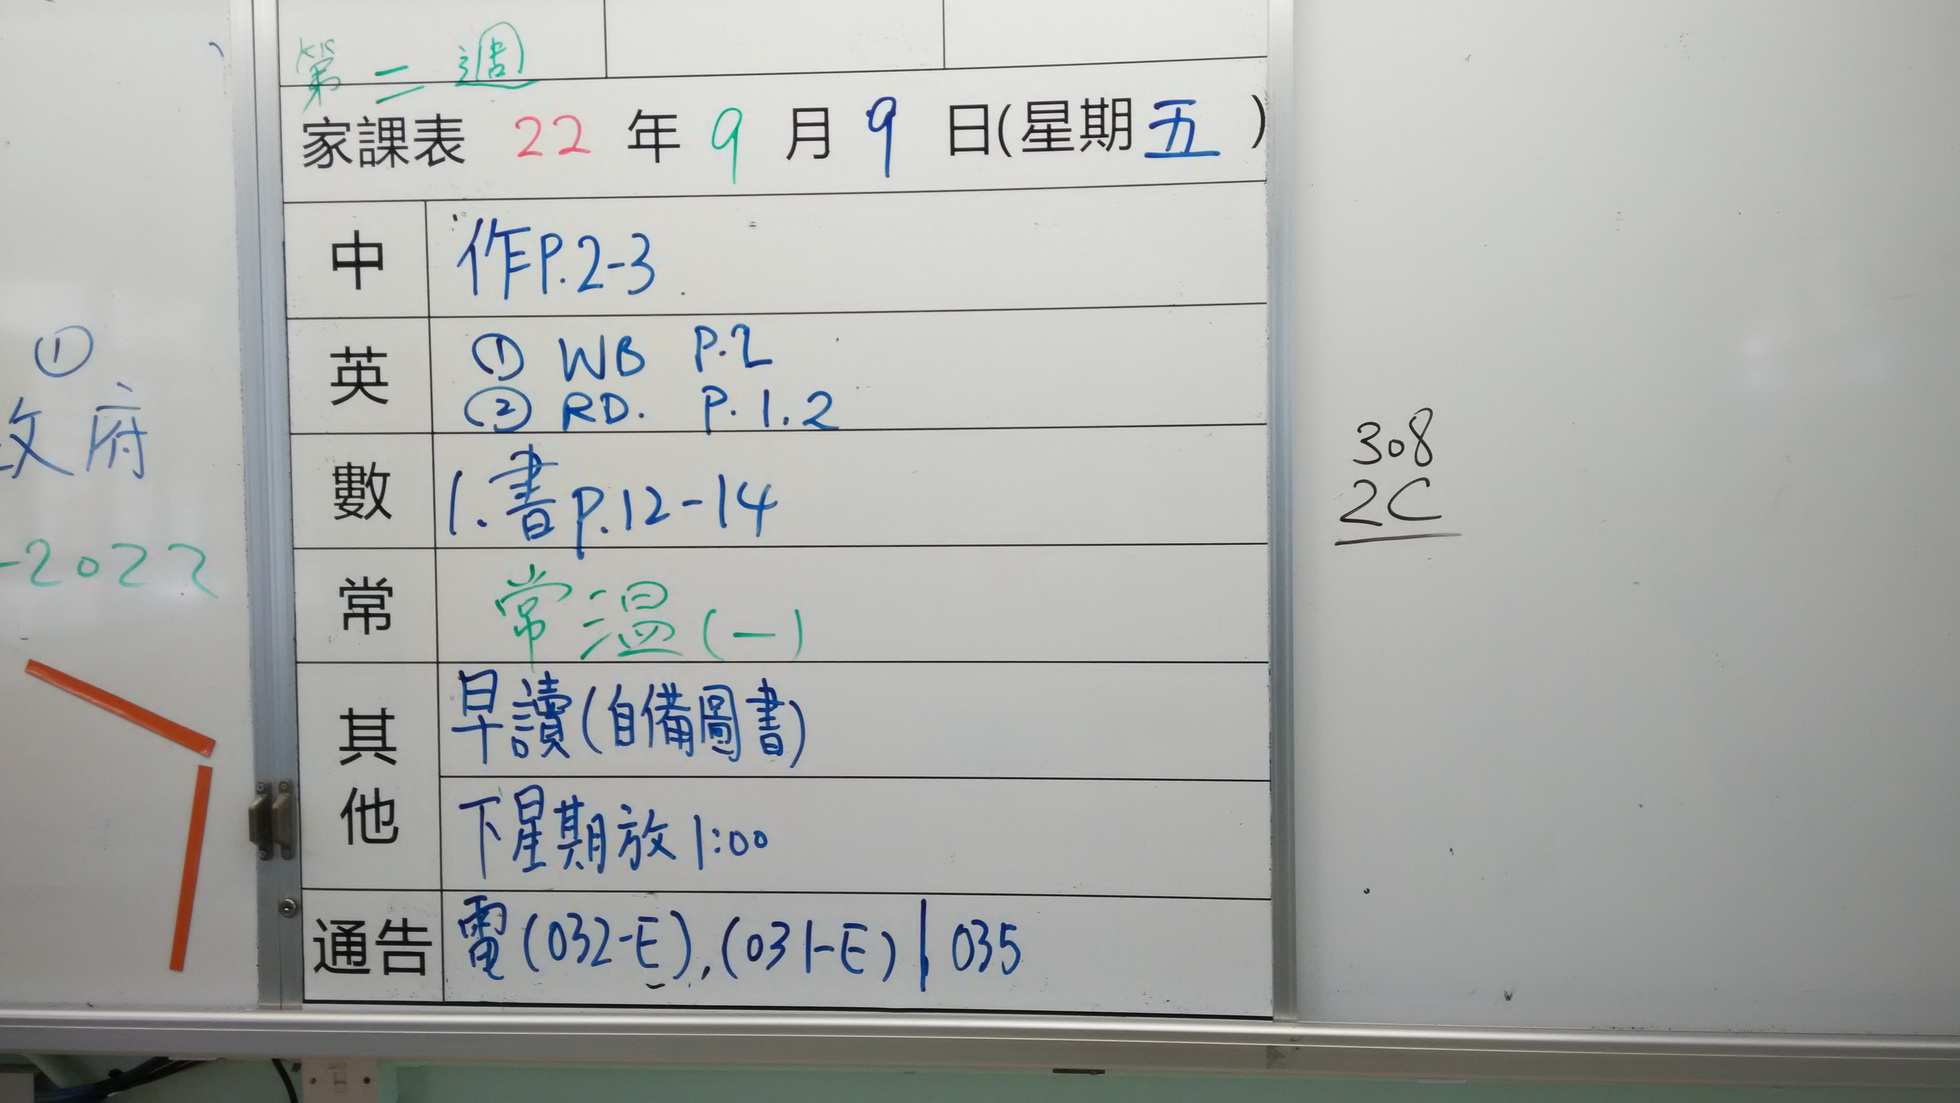 ①
政府
-2022
第二週
家課表 22 年 9 月 9 日(星期五)
中 作P.2-3
英 ① WB P.2
② RD. P.1.2
數 1.書P.12-14
常 常溫(一)
其他 早讀(自備圖書)
下星期放1:00
通告 電(032-E),(031-E) | 035
308
2C